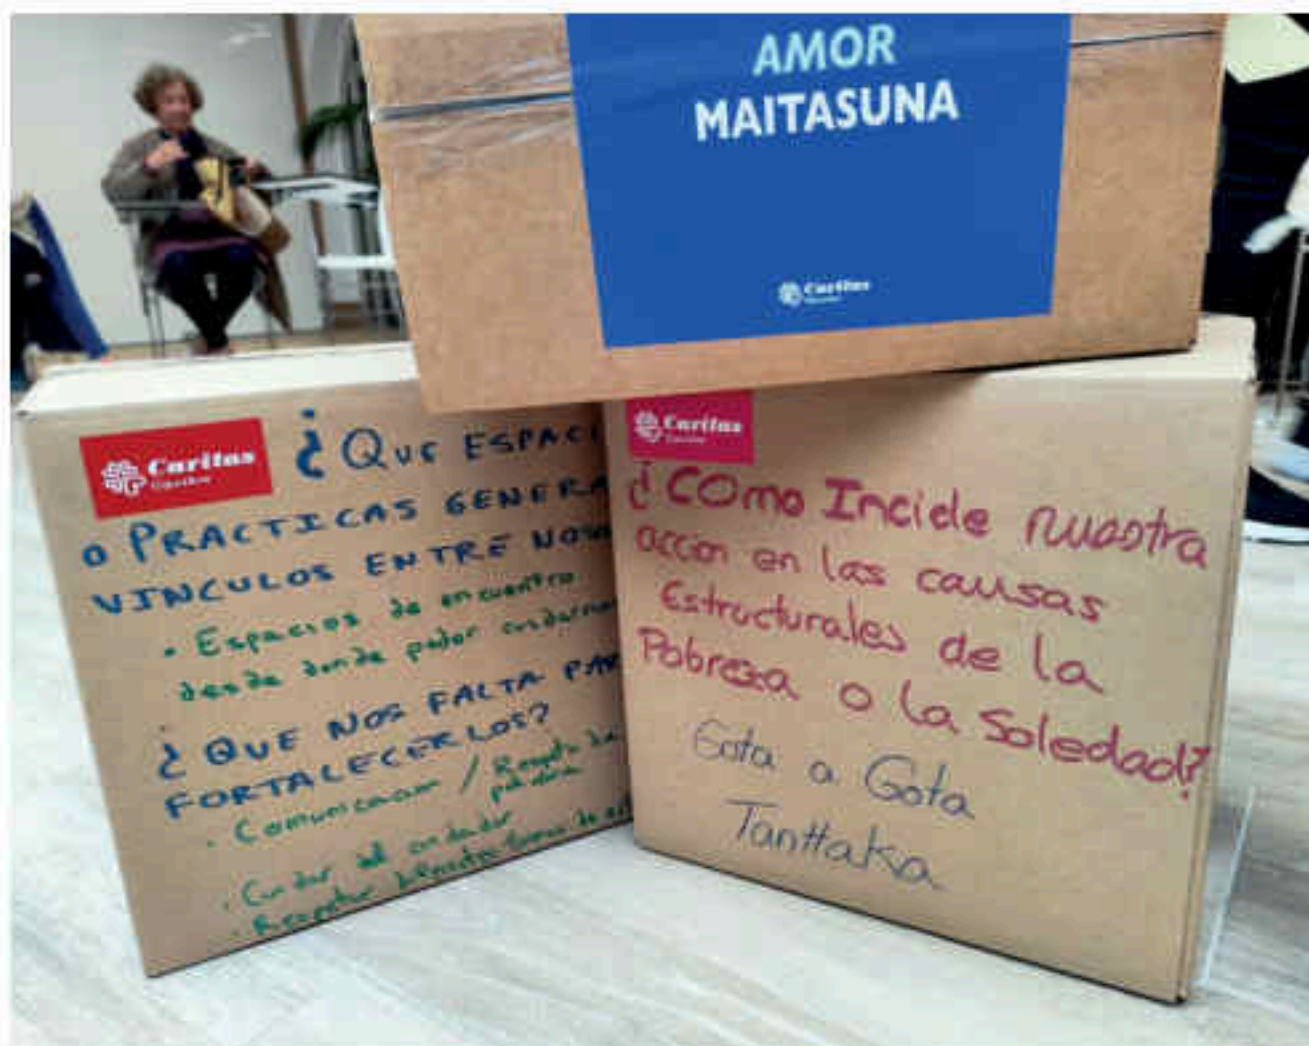 AMOR
MAITASUNA
Caritas
Caritas
¿QUE ESPACI
O PRACTICAS GENERA
VINCULOS ENTRE NOSO
. Espacios de encuentro
desde donde poder cuidarnos
¿QUE NOS FALTA PAR
FORTALECERLOS?
. Comunicacion / Respeto de
palabra
. Cuidar al cuidador
. Respetar diferentes formas de
Caritas
¿COmo Incide nuestra
accion en las causas
Estructurales de la
Pobreza o la Soledad?
Gota a Gota
Tanttaka